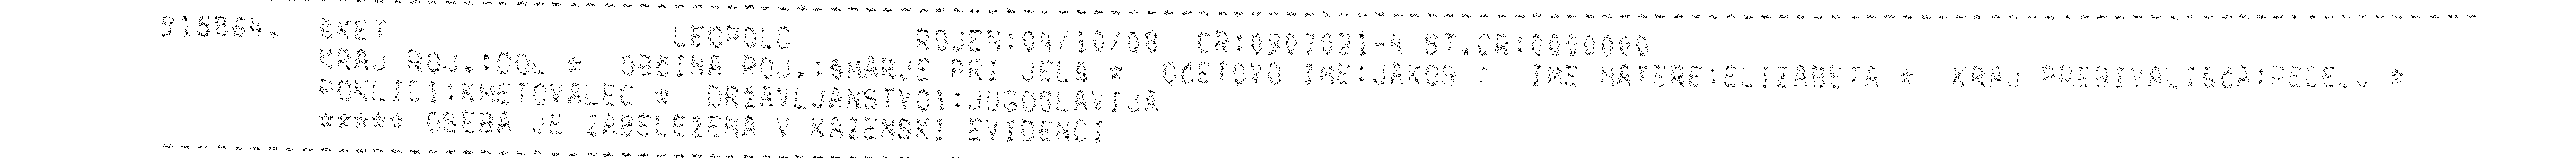 915864. ŠKET LEOPOLD ROJEN:04/10/08 CR:0907021-4 ST.CR:0000000
KRAJ ROJ.:DOL * OBČINA ROJ.:ŠMARJE PRI JELŠ * OČETOVO IME:JAKOB * IME MATERE:ELIZABETA * KRAJ PREBIVALIŠČA:PECELJ *
POKLIC1:KMETOVALEC * DRŽAVLJANSTVO1:JUGOSLAVIJA
***** OSEBA JE ZABELEŽENA V KAZENSKI EVIDENCI